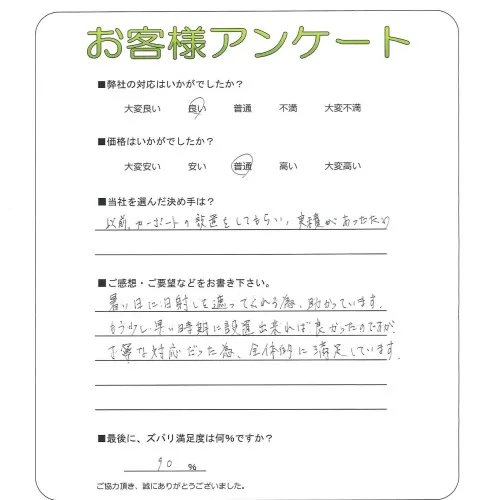 お客様アンケート
■弊社の対応はいかがでしたか？
大変良い 良い 普通 不満 大変不満
■価格はいかがでしたか？
大変安い 安い 普通 高い 大変高い
■当社を選んだ決め手は？
以前、カーポートの設置をしてもらい、実績があったため
■ご感想・ご要望などをお書き下さい。
暑い日に日射しを遮ってくれる為、助かっています。
もう少し早い時期に設置出来れば良かったのですが、
丁寧な対応だった為、全体的に満足しています。
■最後に、ズバリ満足度は何％ですか？
90 ％
ご協力頂き、誠にありがとうございました。